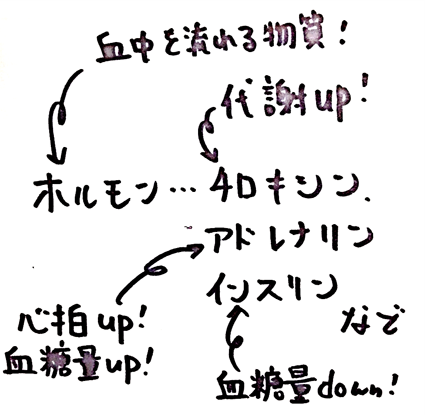 血中を流れる物質!
代謝up!
ホルモン…チロキシン、
アドレナリン
インスリン
など
心拍up!
血糖量up!
血糖量down!